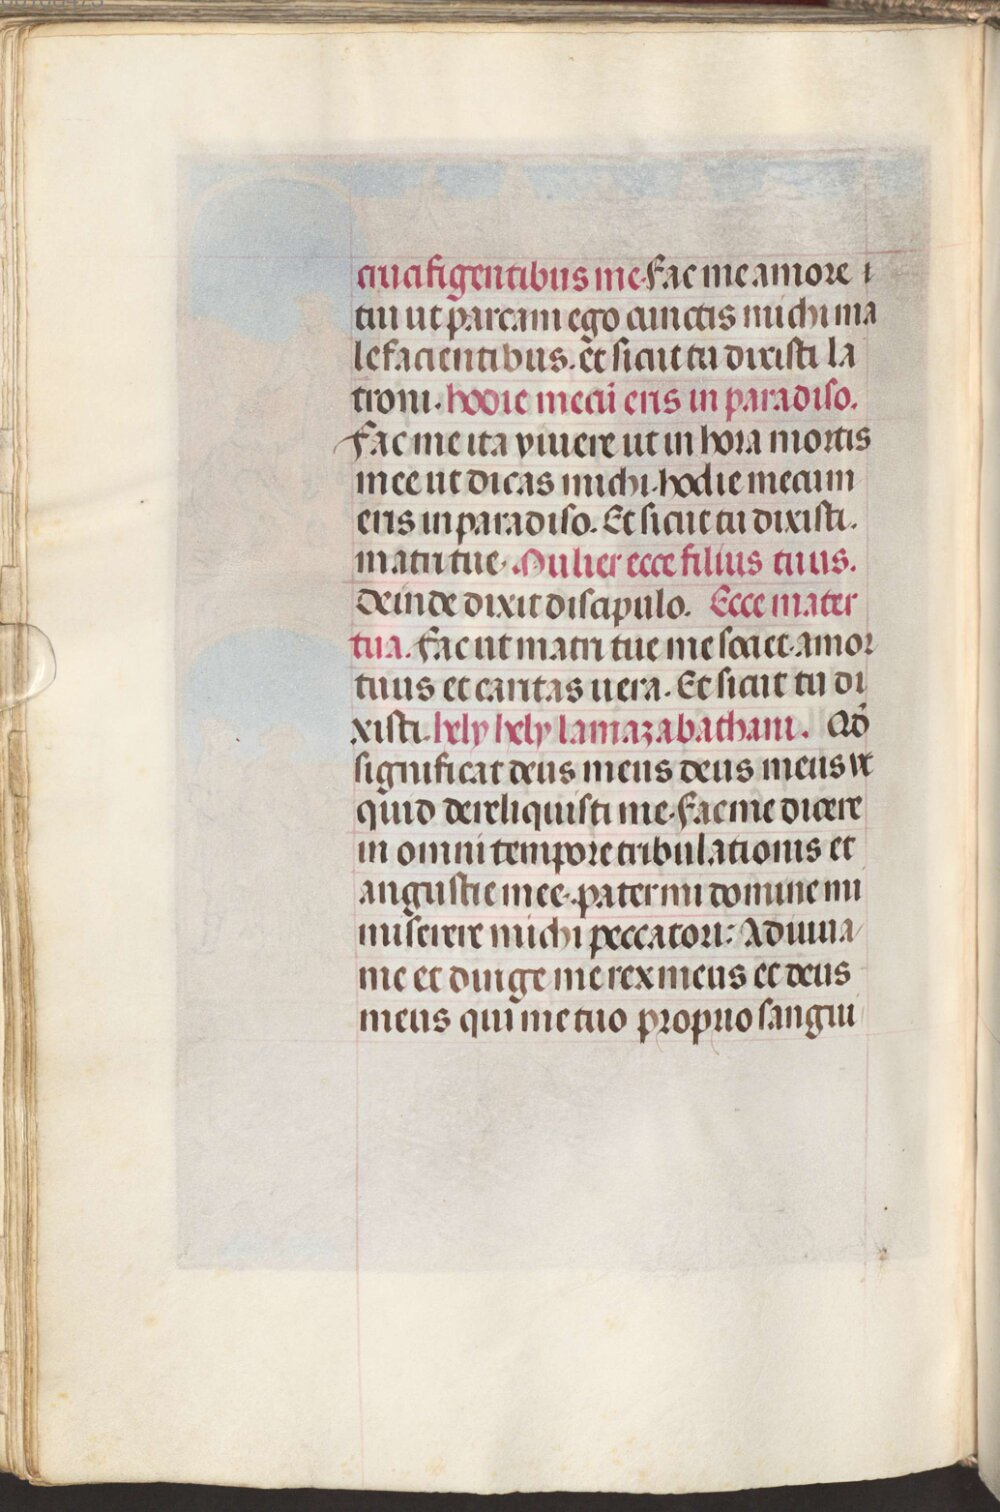 crucifigentibus me. Fac me amore
tui ut parcam ego cunctis michi ma
lefacientibus. et sicut tu dixisti la
troni. hodie mecū eris in paradiso.
Fac me ita vivere ut in hora mortis
mee ut dicas michi. hodie mecum
eris in paradiso. Et sicut tu dixisti.
matri tue. Mulier ecce filius tuus.
Deinde dixit discipulo. Ecce mater
tua. fac ut matri tue me societ. amor
tuus et caritas uera. Et sicut tu di
xisti. hely hely lamazabathani. Qd̄
significat deus meus deus meus ut
quid dereliquisti me. Fac me dicere
in omni tempore tribulationis et
angustie mee. pater mi domine mi
miserere michi peccatori: Adiuua
me et dirige me rex meus et deus
meus qui me tuo proprio sangui